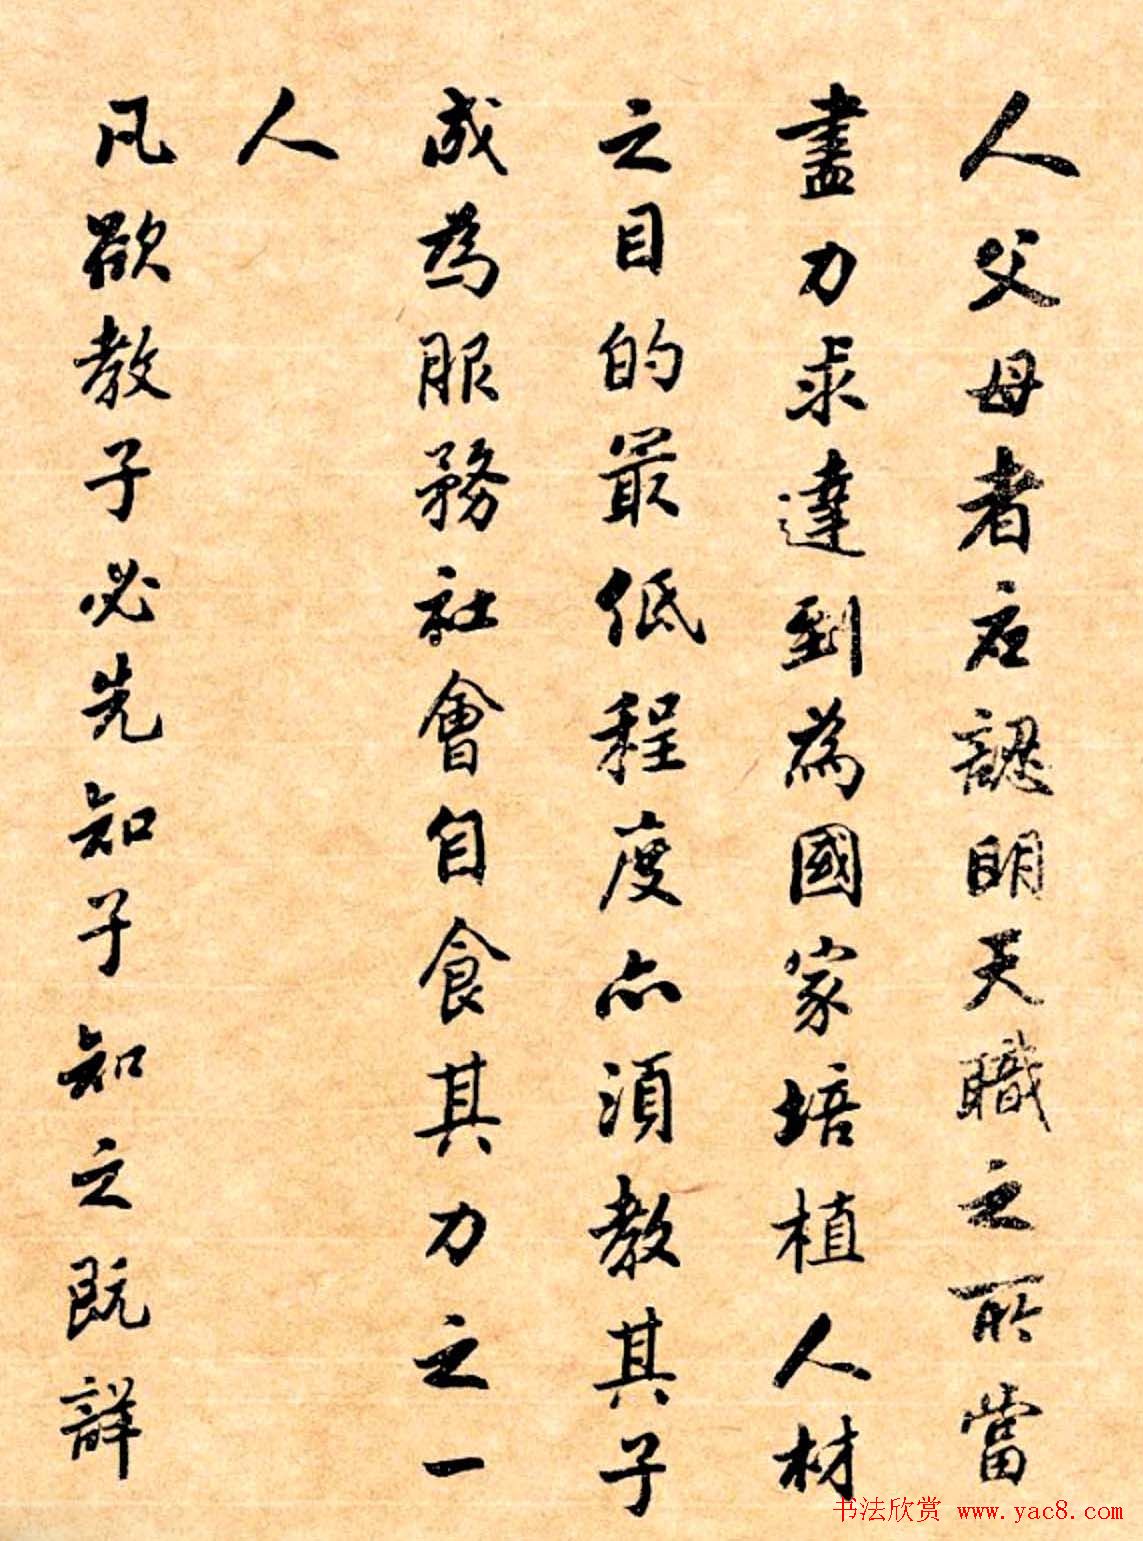 人父母者应認明天職之所當
盡力求達到為國家培植人材
之目的最低程度亦須教其子
成為服務社會自食其力之一
人
凡欲教子必先知子知之既詳
书法欣赏 www.yac8.com